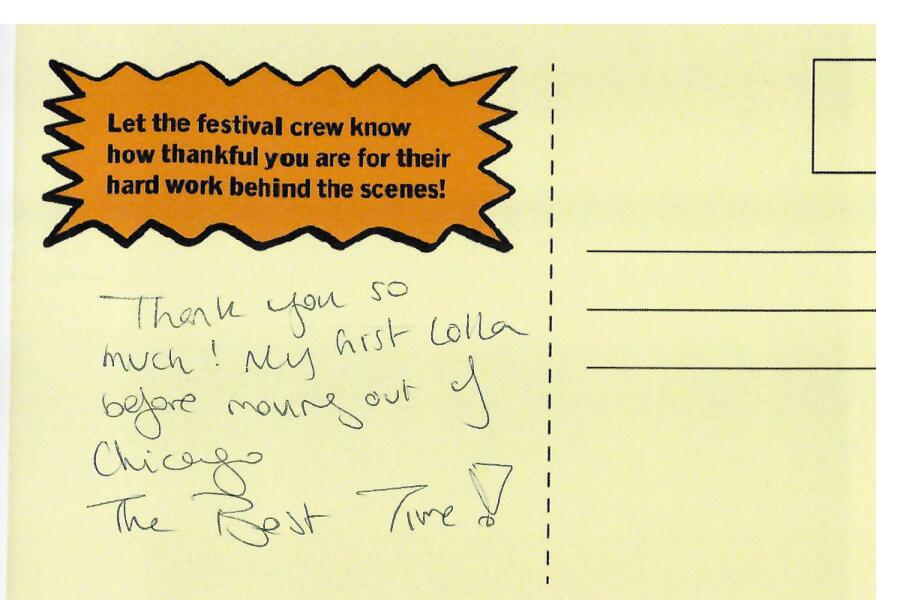 Let the festival crew know
how thankful you are for their
hard work behind the scenes!
Thank you so
much! My first Lolla
before moving out of
Chicago
The Best Time!